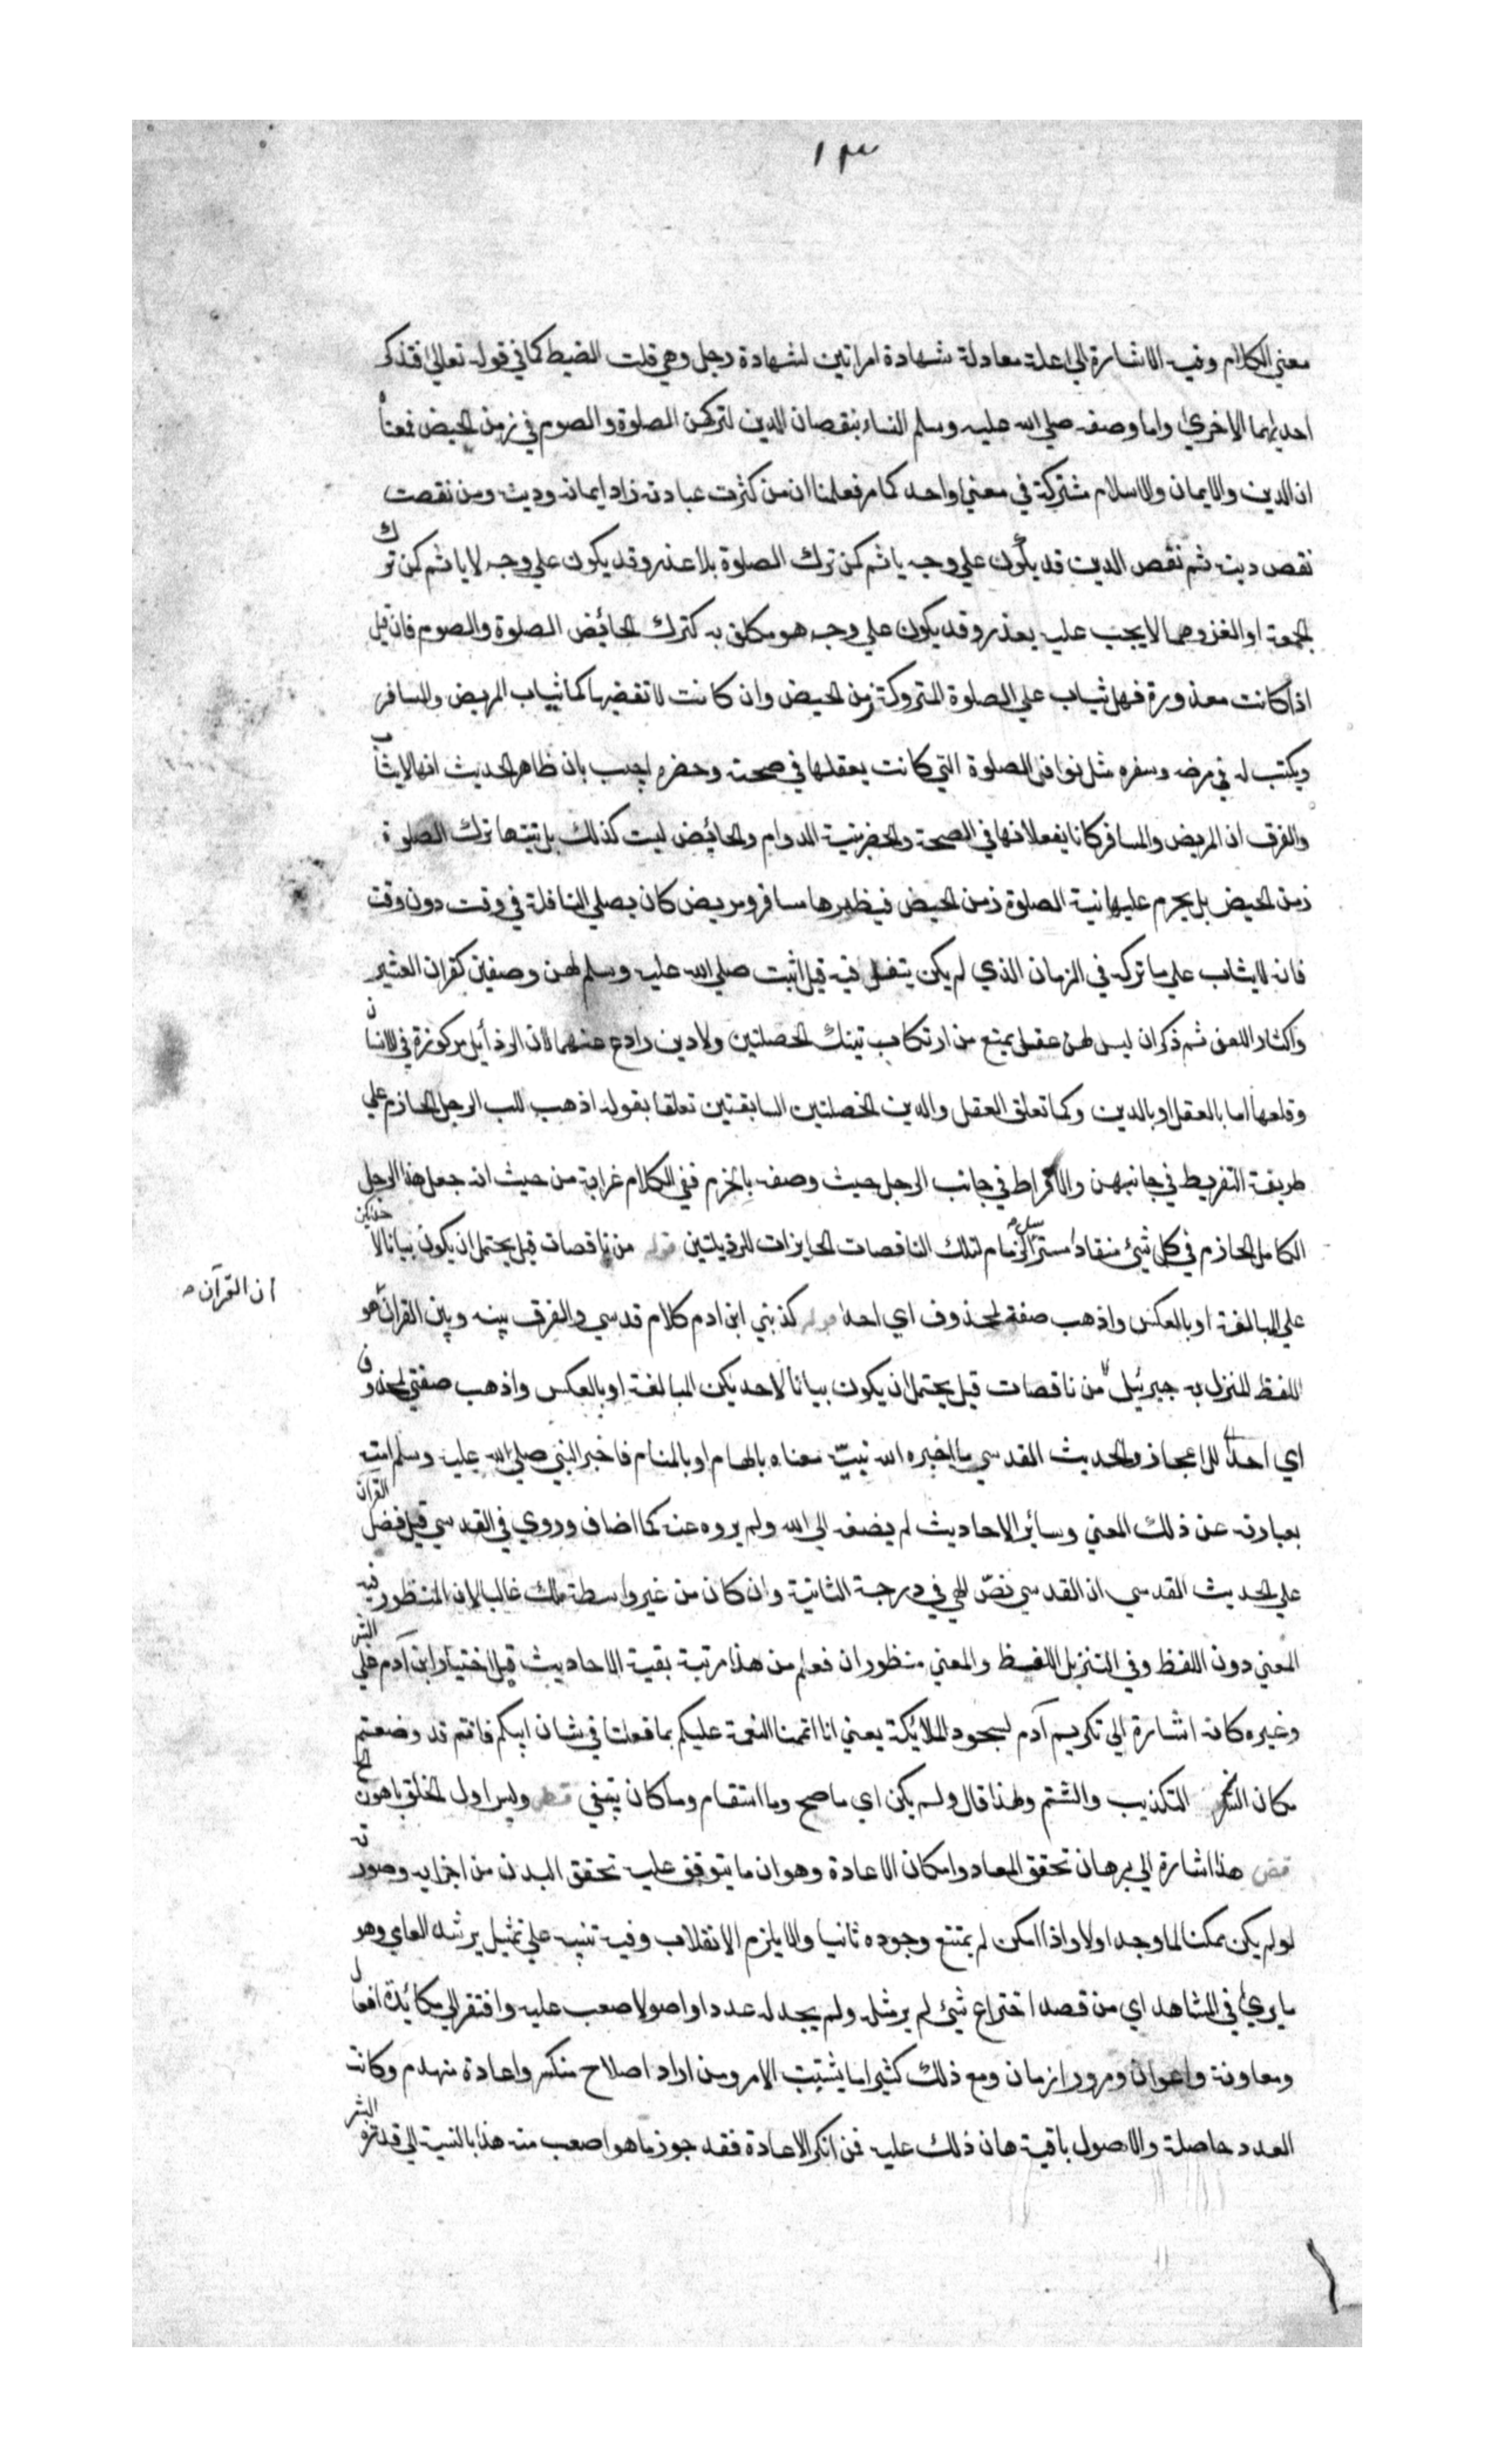 ١٣
معني الكلام وفيه الاشارة الي علة معادلة شهادة امراتين لشهادة رجل وهي قلت الضبط كما في قوله تعالي فتذكر
احديهما الاخري واما وصفه صلي الله عليه وسلم النساء بنقصان الدين لتركهن الصلوة والصوم في زمن الحيض فمعناه
ان الدين والايمان والاسلام مشتركة في معني واحد كما مر فعلمنا ان من كثرت عبادته زاد ايمانه ودينه ومن نقصت
نقص دينه ثم نقص الدين قد يكون علي وجه ياثم كمن ترك الصلوة بلا عذر وقد يكون علي وجه لا ياثم كمن ترك
الجمعة او الغزو مما لا يجب عليه بعذر وقد يكون علي وجه هو مكلف به كترك الحائض الصلوة والصوم فان قيل
اذا كانت معذورة فهل تثاب علي الصلوة المتروكة زمن الحيض وان كانت لا تقضيها كما يثاب المريض والمسافر
ويكتب له في مرضه وسفره مثل نوافل الصلوة التي كانت يفعلها في صحته وحضره اجيب بان ظاهر الحديث انها لا يثاب
والفرق ان المريض والمسافر كانا يفعلانها في الصحة والحضر بنية الدوام والحائض ليت كذلك بل نيتها ترك الصلوة
زمن الحيض بل يحرم عليها نية الصلوة زمن الحيض فيظهرها مسافر ومريض كان يصلي النافلة في وقت دون وقت
فانه لا يثاب علي ما تركه في الزمان الذي لم يكن يتنفل فيه قيل اثبت صلي الله عليه وسلم لهن وصفين كفران العشير
واكثار اللعن ثم ذكر ان ليس لهن عقل يمتنع من ارتكاب تينك الخصلتين ولا دين رادع عنهما لان الرذائل مركوزة في الانسان
وقلعها اما بالعقل او بالدين وكما تعلق العقل والدين الخصلتين السابقتين تعلقا بقوله اذهب للب الرجل الحازم علي
طريقة التفريط في جانبهن والافراط في جانب الرجل حيث وصفه بالحزم ففي الكلام غرابة من حيث انه جعل هذا الرجل
الكامل الحازم في كل شيئ منقادا مسترسل الزمام لتلك الناقصات الحايزات للرذيلتين قوله من ناقصات قيل يحتمل ان يكون بيانا لاحديكن
علي المبالغة او بالعكس واذهب صفة لمحذوف اي احدا قوله كذبني ابن ادم كلام قدسي والفرق بينه وبين القران هو
ان القرآن
اللفظ المنزل به جبرئيل من ناقصات قيل يحتمل ان يكون بيانا لاحديكن المبالغة او بالعكس واذهب صفتي لمحذوف
اي احدا للاعجاز والحديث القدسي ما اخبره الله نبيّه معناه بالهام او بالمنام فاخبر النبي صلي الله عليه وسلم امته
بعبارته عن ذلك المعني وسائر الاحاديث لم يضفه الي الله ولم يروه عنه كما اضاف وروي في القدسي قيل فضل القرآن
علي الحديث القدسي ان القدسي نصّ الهي في درجة الثانية وان كان من غير واسطة ملك غالبا لان المنظور فيه
المعني دون اللفظ وفي التنزيل اللفظ والمعني منظوران فعلم من هذا مرتبة بقية الاحاديث قيل اختيار ابن آدم علي البشر
وغيره كانه اشارة الي تكريم آدم لسجود الملائكة يعني انا اتممنا النعمة عليكم بما فعلنا في شان ابيكم فانتم قد وضعتم
مكان الشكر التكذيب والشتم ولهذا قال ولم يكن اي ما صح وما استقام وما كان ينبغي قوله وليس اول الخلق باهون الخ
قض هذا اشارة الي برهان تحقق المعاد وامكان الاعادة وهو ان ما يتوقف عليه تحقق البدن من اجزايه وصورته
لو لم يكن ممكنا لما وجد اولا واذا امكن لم يمتنع وجوده ثانيا والا يلزم الانقلاب وفيه تنبيه علي تمثيل يرشد العامي وهو
ما يري في المشاهد اي من قصد اختراع شيئ لم ير مثله ولم يجد له عددا واصولا صعب عليه وافتقر الي مكائدة افعال
ومعاونة واعوان ومرور ازمان ومع ذلك كثيرا ما يشتبت الامر ومن اراد اصلاح منكسر واعادة منهدم وكانت
العدد حاصلة والاصول باقية هان ذلك عليه فمن انكر الاعادة فقد جوز ما هو اصعب منه هذا بالنسبة الي قدرة البشر